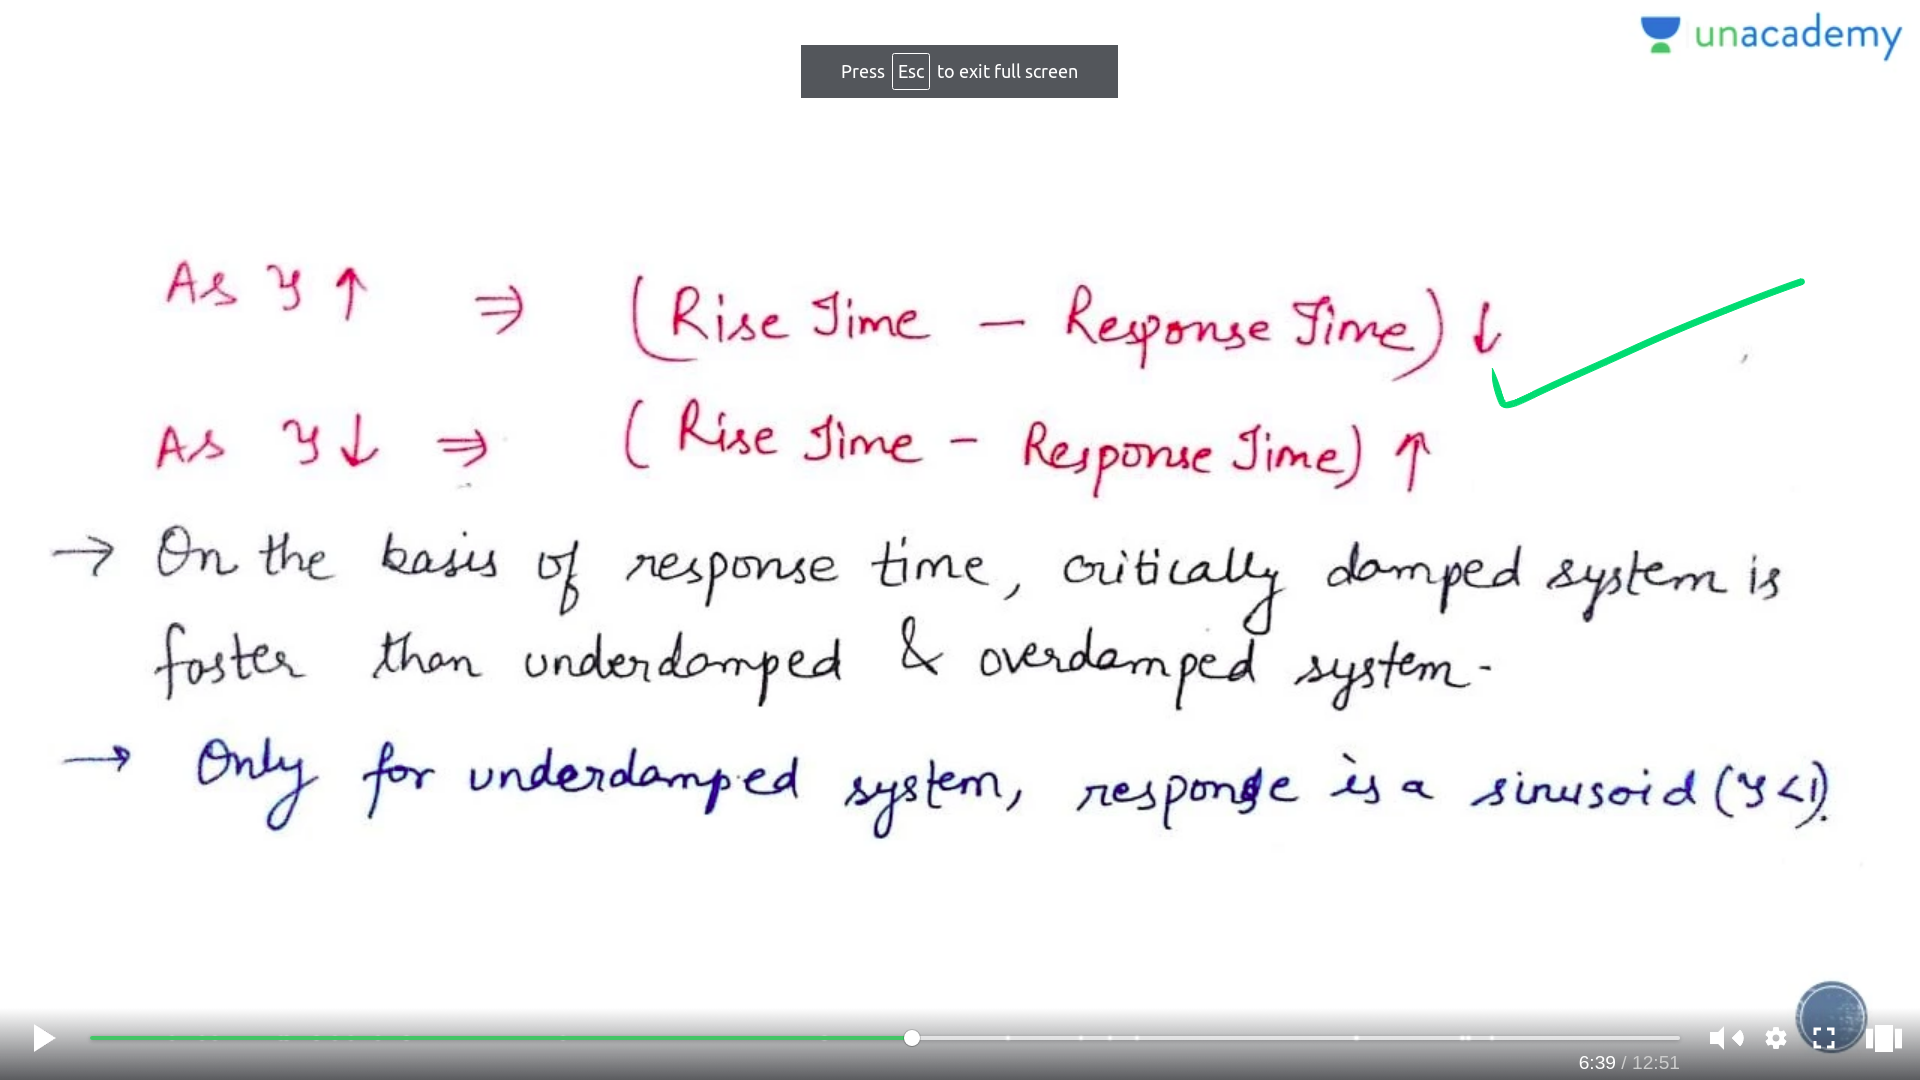 unacademy
Press Esc to exit full screen
As ξ ↑ ⇒ (Rise Time - Response Time) ↓
As ξ ↓ ⇒ (Rise Time - Response Time) ↑
→ On the basis of response time, critically damped system is
faster than underdamped & overdamped system.
→ Only for underdamped system, response is a sinusoid (ξ<1).
6:39 / 12:51